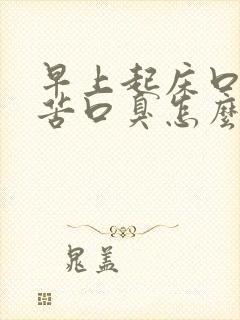 早上起床口
苦口臭怎麼
晁盖